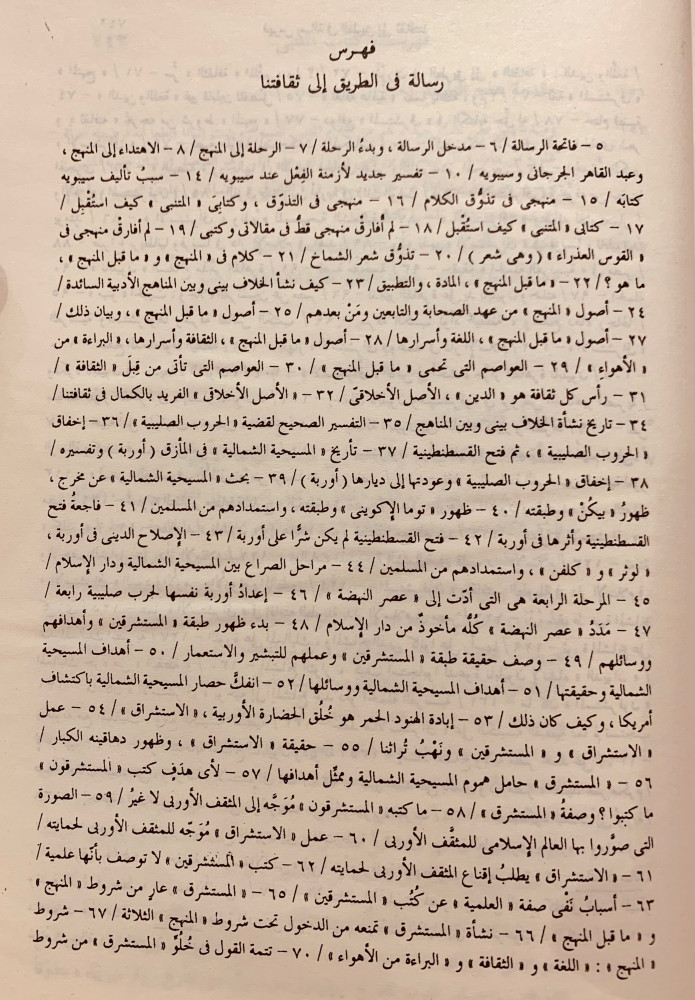 فهـرس
رسالة فى الطريق إلى ثقافتنا
٥ – فاتحة الرسالة / ٦ – مدخل الرسالة ، وبدءُ الرحلة / ٧ – الرحلة إلى المنهج / ٨ – الاهتداء إلى المنهج ،
وعبد القاهر الجرجانى وسيبويه / ١٠ – تفسير جديد لأزمنة الفِعْل عند سيبويه / ١٤ – سببُ تأليف سيبويه
كتابَه / ١٥ – منهجى فى تذوُّق الكلام / ١٦ – منهجى فى التذوّق ، وكتابِىَ « المتنبى » كيف استُقْبِل /
١٧ – كتابى « المتنبى » كيف استُقْبل / ١٨ – لم أفارقْ منهجى قطُّ فى مقالاتى وكتبى / ١٩ – لم أفارقْ منهجى فى
« القوس العذراء » ( وهى شعر ) / ٢٠ – تذوُّق شعر الشماخ / ٢١ – كلام فى « المنهج » و « ما قبل المنهج » ،
ما هو ؟ / ٢٢ – « ما قبل المنهج » ، المادة ، والتطبيق / ٢٣ – كيف نشأ الخلاف بينى وبين المناهج الأدبية السائدة /
٢٤ – أصول « المنهج » من عهد الصحابة والتابعين ومَنْ بعدهم / ٢٥ – أصول « ما قبل المنهج » ، وبيان ذلك /
٢٧ – أصول « ما قبل المنهج » ، اللغة وأسرارها / ٢٨ – أصول « ما قبل المنهج » ، الثقافة وأسرارها ، « البراءة » من
« الأهواءِ » / ٢٩ – العواصم التى تحمى « ما قبل المنهج » / ٣٠ – العواصم التى تأتى من قِبَل « الثقافة » /
٣١ – رأس كل ثقافة هو « الدين » ، الأصل الأخلاقىّ / ٣٢ – « الأصل الأخلاقى » الفريد بالكمال فى ثقافتنا /
٣٤ – تاريخ نشأة الخلاف بينى وبين المناهج / ٣٥ – التفسير الصحيح لقضية « الحروب الصليبية » / ٣٦ – إخفاق
« الحروب الصليبية » ، ثم فتح القسطنطينية / ٣٧ – تأريخ « المسيحية الشمالية » فى المأزق ( أوربة ) وتفسيره /
٣٨ – إخفاق « الحروب الصليبية » وعودتها إلى ديارها ( أوربة ) / ٣٩ – بحث « المسيحية الشمالية » عن مخرج ،
ظهورُ « بيكُنْ » وطبقته / ٤٠ – ظهور « توما الإكوينى » وطبقته ، واستمدادهم من المسلمين / ٤١ – فاجعةُ فتح
القسطنطينية وأثرها فى أوربة / ٤٢ – فتح القسطنطينية لم يكن شرًّا على أوربة / ٤٣ – الإصلاح الدينى فى أوربة ،
« لوثر » و « كلفن » ، واستمدادهم من المسلمين / ٤٤ – مراحل الصراع بين المسيحية الشمالية ودار الإسلام /
٤٥ – المرحلة الرابعة هى التى أدّت إلى « عصر النهضة » / ٤٦ – إعدادُ أوربة نفسها لحرب صليبية رابعة /
٤٧ – مَدَدُ « عصر النهضة » كُلُّه مأخوذٌ من دار الإسلام / ٤٨ – بدء ظهور طبقة « المستشرقين » وأهدافهم
ووسائلهم / ٤٩ – وصف حقيقة طبقة « المستشرقين » وعملهم للتبشير والاستعمار / ٥٠ – أهداف المسيحية
الشمالية وحقيقتها / ٥١ – أهداف المسيحية الشمالية ووسائلها / ٥٢ – انفكَّ حصار المسيحية الشمالية باكتشاف
أمريكا ، وكيف كان ذلك / ٥٣ – إبادة الهنود الحمر هو خُلُق الحضارة الأوربية ، « الاستشراق » / ٥٤ – عمل
« الاستشراق » و « المستشرقين » ونَهْبُ تُراثنا / ٥٥ – حقيقة « الاستشراق » ، وظهور دهاقينه الكبار /
٥٦ – « المستشرق » حامل هموم المسيحية الشمالية وممثِّل أهدافها / ٥٧ – لأى هدَفٍ كتب « المستشرقون »
ما كتبوا ؟ وصفةُ « المستشرق » / ٥٨ – ما كتبه « المستشرقون » مُوَجَّه إلى المثقف الأوربى لا غيرُ / ٥٩ – الصورة
التى صوَّروا بها العالم الإسلامى للمثقَّف الأوربى / ٦٠ – عمل « الاستشراق » مُوَجّه للمثقف الأوربى لحمايته /
٦١ – « الاستشراق » يطلبُ إقناع المثقف الأوربى لحمايته / ٦٢ – كتب « المستشرقين » لا توصف بأنّها علمية /
٦٣ – أسبابُ نَفْى صفة « العلمية » عن كُتُب « المستشرقين » / ٦٥ – « المستشرق » عارٍ من شروط « المنهج »
و « ما قبل المنهج » / ٦٦ – نشأة « المستشرق » تمنعه من الدخول تحت شروط « المنهج » الثلاثة / ٦٧ – شروط
« المنهج » : « اللغة » و « الثقافة » و « البراءة من الأهواء » / ٧٠ – تتمة القول فى خُلُوِّ « المستشرق » من شروط